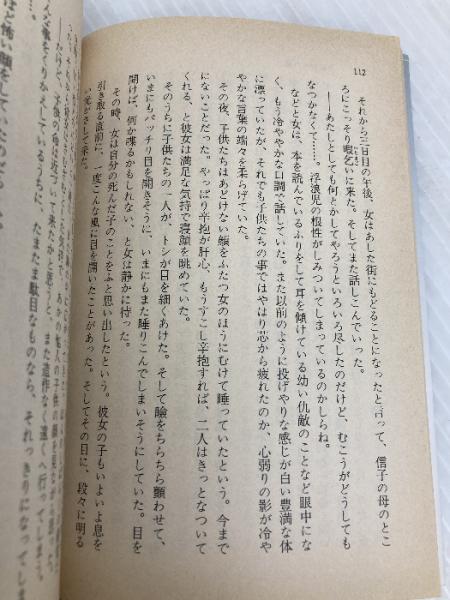 112
それから三日目の午後、女はあした街にもどることになったと言って、信子の母のとこ
ろにこっそり暇乞いに来た。そしてまた話しこんでいった。
――あたしとしても何とかしてやろうといろいろ尽したのだけど、むこうがどうしても
なつかなくて……。浮浪児の根性がしみついてしまっているのかしらね。
などと女は、本を読んでいるふりをして耳を傾けている幼い仇敵のことなど眼中にな
く、もう冷ややかな口調で話していた。また以前のように投げやりな感じが白い豊満な体
に漂っていたが、それでも子供たちの事ではやはり芯から疲れたのか、心弱りの影が冷や
やかな言葉の端々を柔らげていた。
その夜、子供たちはあどけない顔をふたつ女のほうにむけて睡っていたという。今まで
にないことだった。やっぱり辛抱が肝心、もうすこし辛抱すれば、二人はきっとなついて
くれる、と彼女は満足な気持で寝顔を眺めていた。
そのうちに子供たちの一人が、トシが目を細くあけた。そして瞼をちらちら顫わせて、
いまにもパッチリ目を開きそうに、いまにもまた睡りこんでしまいそうにしていた。目を
開けば、何か喋るかもしれない、と女は静かに待った。
その時、女は自分の死んだ子のことをふと思い出したという。彼女の子もいよいよ息を
引き取る直前に、一度こんな風に目を開いたことがあった。そしてその目に、段々に明る
い光がさして来た。